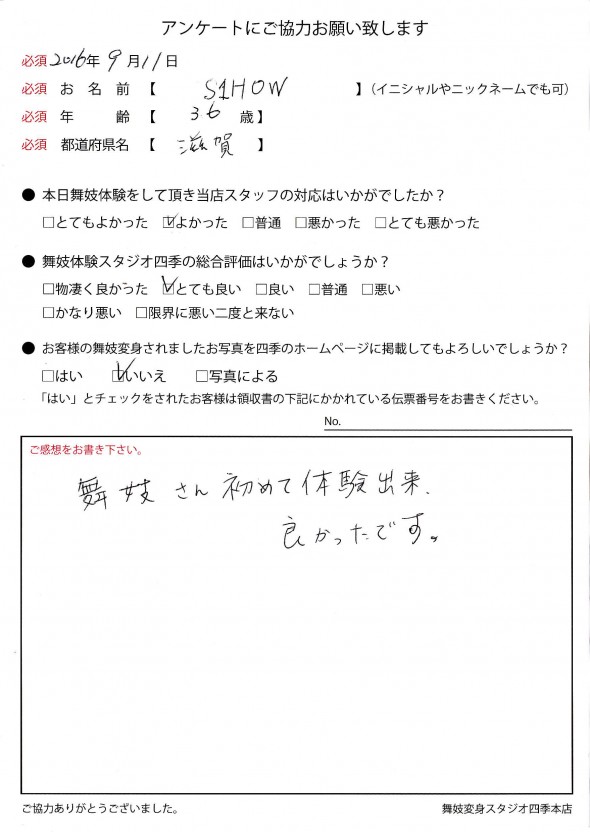 アンケートにご協力お願い致します
必須 2016年 9月11日
必須 お名前 【 S1HOW 】（イニシャルやニックネームでも可）
必須 年齢 【 36 歳】
必須 都道府県名 【 滋賀 】
● 本日舞妓体験をして頂き当店スタッフの対応はいかがでしたか？
□とてもよかった ☑よかった □普通 □悪かった □とても悪かった
● 舞妓体験スタジオ四季の総合評価はいかがでしょうか？
□物凄く良かった ☑とても良い □良い □普通 □悪い
□かなり悪い □限界に悪い二度と来ない
● お客様の舞妓変身されましたお写真を四季のホームページに掲載してもよろしいでしょうか？
□はい ☑いいえ □写真による
「はい」とチェックをされたお客様は領収書の下記にかかれている伝票番号をお書きください。
No.
ご感想をお書き下さい。
舞妓さん初めて体験出来、
良かったです。
ご協力ありがとうございました。 舞妓変身スタジオ四季本店